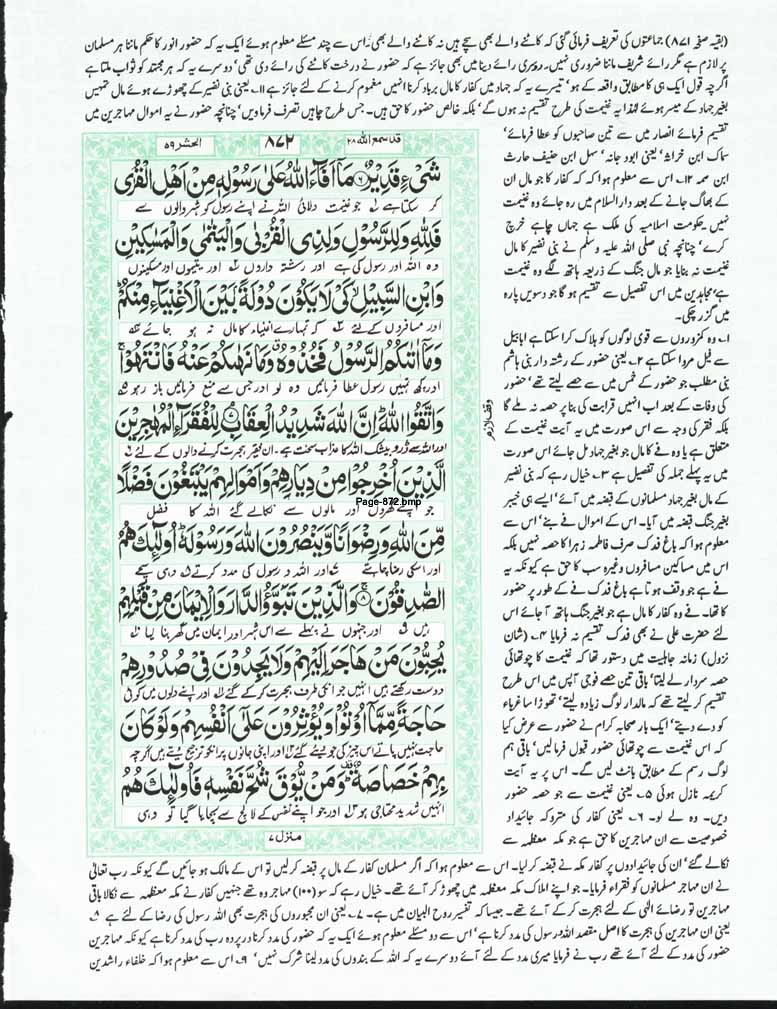 (بقیہ صفحہ ۸۷۱) جماعتوں کی تعریف فرمائی گئی کہ کاٹنے والے بھی سچے ہیں نہ کاٹنے والے بھی۔ اس سے چند مسئلے معلوم ہوئے ایک یہ کہ حضور انور کا حکم ماننا ہر مسلمان
پر لازم ہے مگر رائے شریف ماننا ضروری نہیں۔ روبری رائے دینا بھی جائز ہے کہ حضور نے درخت کاٹنے کی رائے دی تھی‘ دوسرے یہ کہ ہر مجتہد کو ثواب ملتا ہے
اگرچہ قول ایک ہی کا مطابق واقعہ کے ہو‘ تیسرے یہ کہ جہاد میں کفار کا مال برباد کرنا انہیں مغموم کرنے کے لئے جائز ہے ۱۱۔ یعنی بنی نضیر کے چھوڑے ہوئے مال تمہیں
بغیر جہاد کے میسر ہوئے لہٰذا یہ غنیمت کی طرح تقسیم نہ ہوں گے‘ بلکہ خالص حضور کا حق ہیں۔ جس طرح چاہیں تصرف فرماویں‘ چنانچہ حضور نے یہ اموال مہاجرین میں
تقسیم فرمائے انصار میں سے تین صاحبوں کو عطا فرمائے‘
سماک ابن خراشہ‘ یعنی ابود جانہ‘ سہل ابن حنیف حارث
ابن صمہ ۱۲۔ اس سے معلوم ہوا کہ کفار کا جو مال ان
کے بھاگ جانے کے بعد دارالسلام میں رہ جائے وہ غنیمت
نہیں۔ حکومت اسلامیہ کی ملک ہے جہاں چاہے خرچ
کرے‘ چنانچہ نبی صلی اللہ علیہ وسلم نے بنی نضیر کا مال
غنیمت نہ بنایا جو مال جنگ کے ذریعہ ہاتھ لگے وہ غنیمت
ہے‘ مجاہدین میں اس تفصیل سے تقسیم ہو گا جو دسویں پارہ
میں گزر چکی۔
۱۔ وہ کمزوروں سے قوی لوگوں کو ہلاک کرا سکتا ہے ابابیل
سے فیل مروا سکتا ہے ۲۔ یعنی حضور کے رشتہ دار بنی ہاشم
بنی مطلب جو حضور کے خمس میں سے حصے لیتے تھے‘ حضور
کی وفات کے بعد اب انہیں قرابت کی بنا پر حصہ نہ ملے گا
بلکہ فقر کی وجہ سے اس صورت میں یہ آیت غنیمت کے
متعلق ہے یا وہ فے کا مال جو بغیر جہاد مل جائے اس صورت
میں یہ پہلے جملہ کی تفصیل ہے ۳۔ خیال رہے کہ بنی نضیر
کے مال بغیر جہاد مسلمانوں کے قبضہ میں آئے‘ ایسے ہی خیبر
بغیر جنگ قبضہ میں آیا۔ اس کے اموال فے بنے‘ اس سے
معلوم ہوا کہ باغ فدک صرف فاطمہ زہرا کا حصہ نہیں بلکہ
اس میں مساکین مسافروں وغیرہ سب کا حق ہے کیونکہ یہ
فے ہے جو وقف ہوتا ہے باغ فدک فے کے طور پر حضور
کا تھا۔ فے وہ کفار کا مال ہے جو بغیر جنگ ہاتھ آ جائے اس
لئے حضرت علی نے بھی فدک تقسیم نہ فرمایا ۴۔ (شان
نزول) زمانہ جاہلیت میں دستور تھا کہ غنیمت کا چوتھائی
حصہ سردار لے لیتا‘ باقی تین حصے فوجی آپس میں اس طرح
تقسیم کر لیتے تھے کہ مالدار لوگ زیادہ لیتے‘ تھوڑا سا غرباء
کو دے دیتے‘ ایک بار صحابہ کرام نے حضور سے عرض کیا
کہ اس غنیمت سے چوتھائی حضور قبول فرمالیں‘ باقی ہم
لوگ رسم کے مطابق بانٹ لیں گے۔ اس پر یہ آیت
کریمہ نازل ہوئی ۵۔ یعنی غنیمت سے جو حصہ حضور
دیں۔ وہ لے لو۔ ۶۔ یعنی کفار کی متروکہ جائیداد
خصوصیت سے ان مہاجرین کا حق ہے جو مکہ معظمہ سے
قد سمع اللہ ۲۸
۸۷۲
الحشر ۵۹
شَیۡءٍ قَدِیۡرٌ ۶ مَاۤ اَفَآءَ اللّٰہُ عَلٰی رَسُوۡلِہٖ مِنۡ اَہۡلِ الۡقُرٰی
کر سکتا ہے جو غنیمت دلائی اللہ نے اپنے رسول کو شہر والوں سے
فَلِلّٰہِ وَلِلرَّسُوۡلِ وَلِذِی الۡقُرۡبٰی وَالۡیَتٰمٰی وَالۡمَسٰکِیۡنِ
وہ اللہ اور رسول کی ہے اور رشتہ داروں اور یتیموں اور مسکینوں
وَابۡنِ السَّبِیۡلِ کَیۡ لَا یَکُوۡنَ دُوۡلَۃًۢ بَیۡنَ الۡاَغۡنِیَآءِ مِنۡکُمۡ
اور مسافروں کے لئے کہ تمہارے اغنیاء کا مال نہ ہو جائے
وَمَاۤ اٰتٰىکُمُ الرَّسُوۡلُ فَخُذُوۡہُ وَمَا نَہٰىکُمۡ عَنۡہُ فَانۡتَہُوۡا
اور جو کچھ تمہیں رسول عطا فرمائیں وہ لو اور جس سے منع فرمائیں باز رہو
وَاتَّقُوا اللّٰہَ اِنَّ اللّٰہَ شَدِیۡدُ الۡعِقَابِ ۷ لِلۡفُقَرَآءِ الۡمُہٰجِرِیۡنَ
اور اللہ سے ڈرو بیشک اللہ کا عذاب سخت ہے۔ ان فقیر ہجرت کرنے والوں کے لئے
الَّذِیۡنَ اُخۡرِجُوۡا مِنۡ دِیَارِہِمۡ وَاَمۡوَالِہِمۡ یَبۡتَغُوۡنَ فَضۡلًا
Page-872.bmp
جو اپنے گھروں اور مالوں سے نکالے گئے اللہ کا فضل
مِّنَ اللّٰہِ وَرِضۡوَانًا وَّیَنۡصُرُوۡنَ اللّٰہَ وَرَسُوۡلَہٗ اُولٰٓئِکَ ہُمُ
اور اسکی رضا چاہتے اور اللہ و رسول کی مدد کرتے وہی سچے
الصّٰدِقُوۡنَ ۸ وَالَّذِیۡنَ تَبَوَّؤُ الدَّارَ وَالۡاِیۡمَانَ مِنۡ قَبۡلِہِمۡ
ہیں اور جنہوں نے پہلے سے اس شہر اور ایمان میں گھر بنا لیا
یُحِبُّوۡنَ مَنۡ ہَاجَرَ اِلَیۡہِمۡ وَلَا یَجِدُوۡنَ فِیۡ صُدُوۡرِہِمۡ
دوست رکھتے ہیں انہیں جو انکی طرف ہجرت کر کے گئے اور اپنے دلوں میں کوئی
حَاجَۃً مِّمَّاۤ اُوۡتُوۡا وَیُؤۡثِرُوۡنَ عَلٰۤی اَنۡفُسِہِمۡ وَلَوۡ کَانَ
حاجت نہیں پاتے اس چیز کی جو دیئے گئے اور اپنی جانوں پر انکو ترجیح دیتے ہیں اگرچہ
بِہِمۡ خَصَاصَۃٌ وَمَنۡ یُّوۡقَ شُحَّ نَفۡسِہٖ فَاُولٰٓئِکَ ہُمُ
انہیں شدید محتاجی ہو اور جو اپنے نفس کے لالچ سے بچایا گیا تو وہی
منزل ۷
وقف لازم
نکالے گئے‘ ان کی جائیدادوں پر کفار مکہ نے قبضہ کر لیا۔ اس سے معلوم ہوا کہ اگر مسلمان کفار کے مال پر قبضہ کر لیں تو اس کے مالک ہو جائیں گے کیونکہ رب تعالٰی
نے ان مہاجر مسلمانوں کو فقراء فرمایا۔ جو اپنے املاک مکہ معظمہ میں چھوڑ کر آئے تھے۔ خیال رہے کہ سو (۱۰۰) مہاجر وہ تھے جنہیں کفار نے مکہ معظمہ سے نکالا باقی
مہاجرین تو رضائے الٰہی کے لئے ہجرت کر کے آئے تھے۔ جیسا کہ تفسیر روح البیان میں ہے۔ ۷۔ یعنی ان مجبوروں کی ہجرت بھی اللہ رسول کی رضا کے لئے ہے ۸۔
یعنی ان مہاجرین کی ہجرت کا اصل مقصد اللہ و رسول کی مدد کرنا ہے‘ اس سے دو مسئلے معلوم ہوئے ایک یہ کہ حضور کی مدد کرنا درپردہ رب کی مدد کرنا ہے کیونکہ مہاجرین
حضور کی مدد کے لئے آئے تھے رب نے فرمایا میری مدد کے لئے آئے دوسرے یہ کہ اللہ کے بندوں کی مدد لینا شرک نہیں‘ ۹۔ اس سے معلوم ہوا کہ خلفاء راشدین